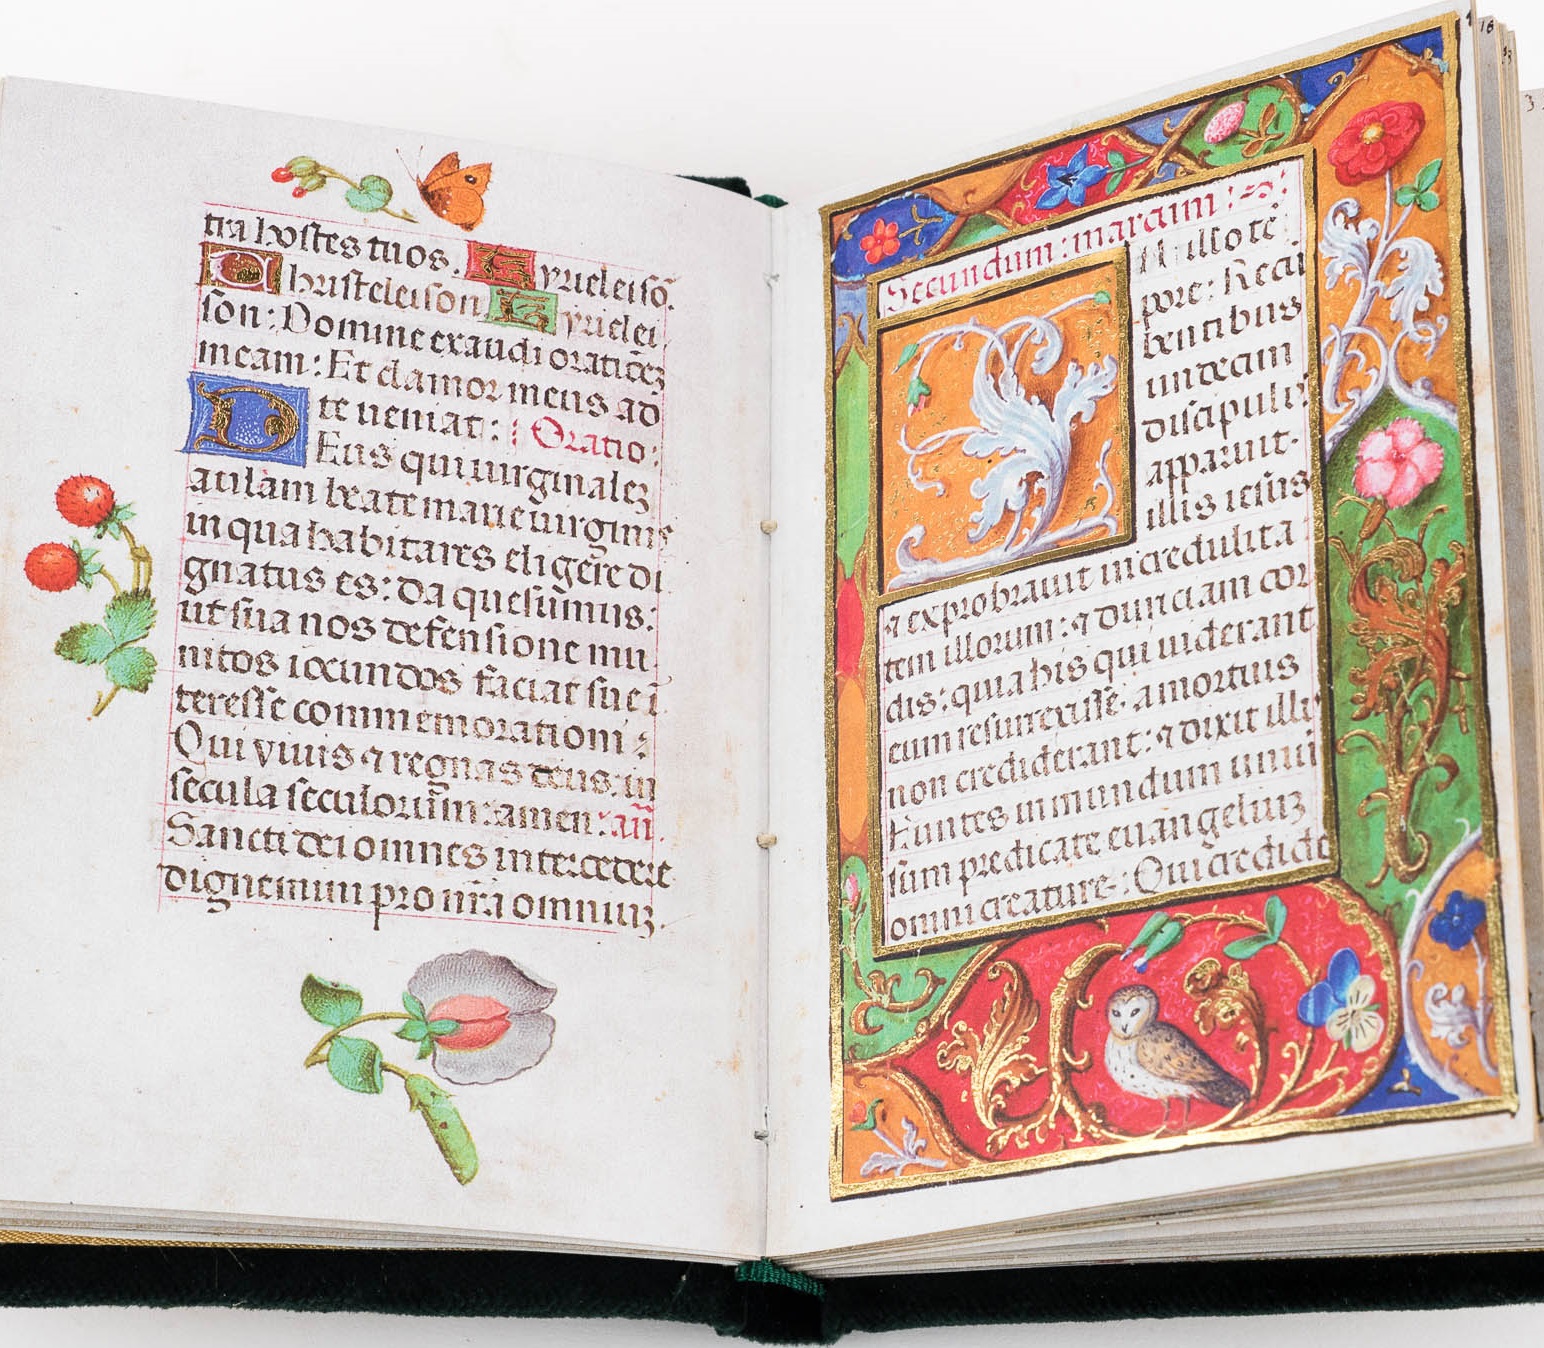 tra hostes tuos. Kyrieleisō.
Christeleison Kyrielei
son: Domine exaudi oratiōeȝ
meam: Et clamor meus ad
te veniat: Oratio:
Deus qui uirginaleȝ
aulam beate marie uirginis
in qua habitares eligere di
gnatus es: da quesum̄us:
ut sua nos defensione mu
nitos iocundos faciat sue ī
teresse commemorationi:
Qui vivis ⁊ regnas deus: in
secula seculorum̄: amen: añ.
Sancti dei omnes intercedere
dignemini pro nr̄a omniuȝ.
Secundum: marcum:
IN illo tē
pore: Recu
bentibus
undecim
discipulis
apparuit.
illis iesus
⁊ exprobrauit incredulita
tem illorum: ⁊ duriciam cor
dis: quia his qui uiderant
eum resurrexisse. a mortuis
non crediderant: ⁊ dixit illis
Euntes in mundum uniu
sum predicate euangeliuȝ
omni creature: Qui credide
16